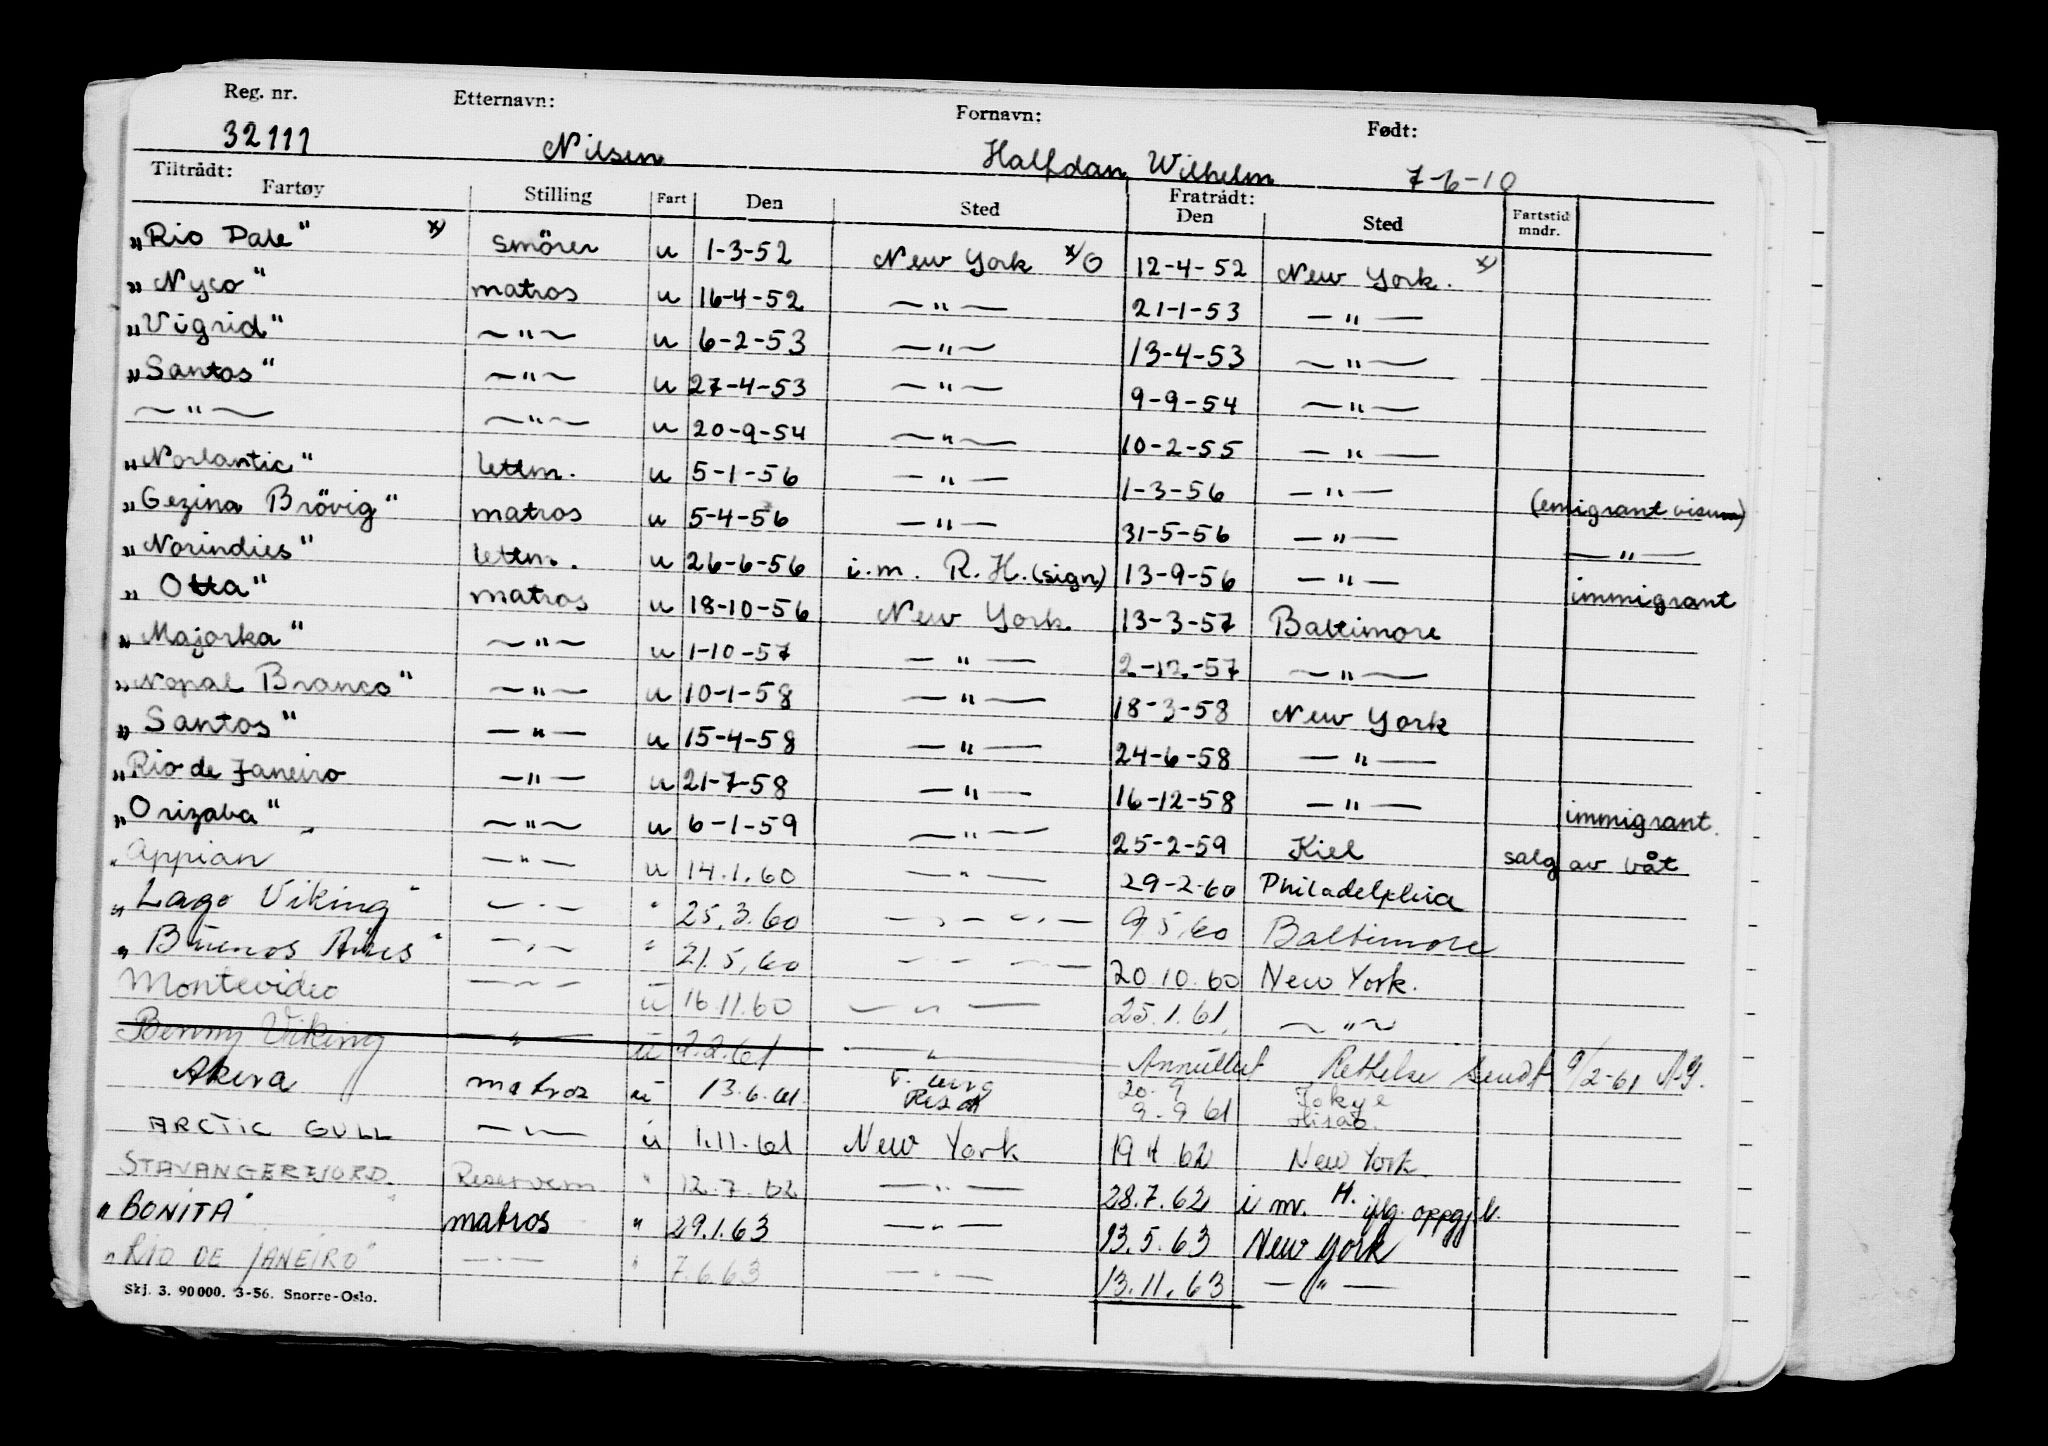 Reg. nr. Etternavn: Fornavn: Født:
32111 Nilsen Halfdan Wilhelm 7-6-10
Tiltrådt: Fratrådt:
Fartøy Stilling Fart Den Sted Den Sted Fartstid mndr.
„Rio Dale" x) smörer u 1-3-52 New York x/O 12-4-52 New York. x)
„Nyco" matros u 16-4-52 —"— 21-1-53 —"—
„Vigrid" —"— u 6-2-53 —"— 13-4-53 —"—
„Santos" —"— u 27-4-53 —"— 9-9-54 —"—
—"— —"— u 20-9-54 —"— 10-2-55 —"—
„Norlantic" lettm. u 5-1-56 —"— 1-3-56 —"— (emigrant visum)
„Gezina Brövig" matros u 5-4-56 —"— 31-5-56 —"— —"—
„Norindies" lettm. u 26-6-56 i.m. R.H.(sign) 13-9-56 —"— immigrant
„Otta" matros u 18-10-56 New York 13-3-57 Baltimore
„Majorka" —"— u 1-10-57 —"— 2-12-57 —"—
„Nopal Branco" —"— u 10-1-58 —"— 18-3-58 New York
„Santos" —"— u 15-4-58 —"— 24-6-58 —"—
„Rio de Janeiro —"— u 21-7-58 —"— 16-12-58 —"— immigrant.
„Orizaba" —"— u 6-1-59 —"— 25-2-59 Kiel salg av båt
„Appian —"— u 14.1.60 —"— 29-2-60 Philadelphia
„Lago Viking" —"— " 25.3.60 —"— 9.5.60 Baltimore
„Buenos Aires" —"— " 21.5.60 —"— 20.10.60 New York.
Montevideo —"— u 16.11.60 —"— 25.1.61. —"—
Benny Viking —"— u 2.2.61 —"— Annullert Rettelse sendt 9/2-61
Akera matros u 13.6.61 20.9 9.9 61
ARCTIC GULL —"— u 1.11.61 New York 19 4 62 New York
STAVANGERFJORD. " 12.7.62 —"— 28.7.62 i mr. H. iflg. oppgj.l.
„BONITA" matros " 29.1.63 —"— 13.5.63 New York
„RIO DE JANEIRO" —"— " 7.6.63 —"— 13.11.63 —"—
Skj. 3. 90000. 3-56. Snorre-Oslo.